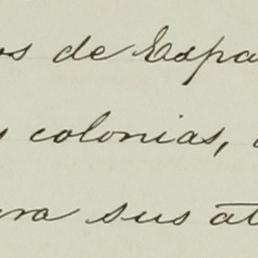 os de Espa
s colonias,
ra sus at